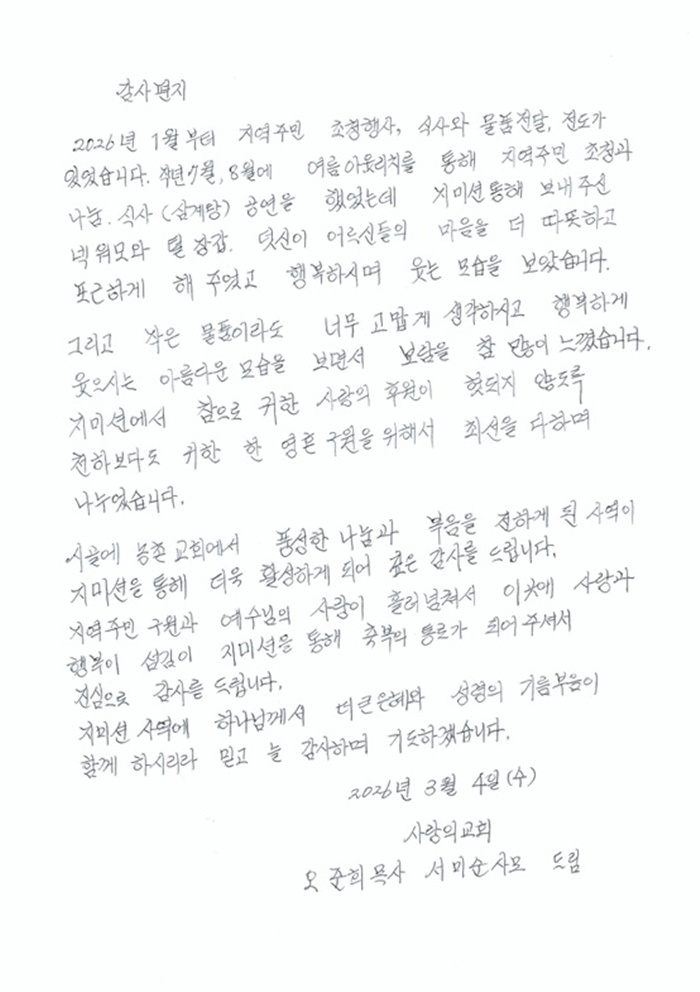 감사편지
2026년 1월부터 지역주민 초청행사, 식사와 물품전달, 전도가
있었습니다. 작년 7월, 8월에 여름아웃리치를 통해 지역주민 초청과
나눔. 식사 (삼계탕) 공연을 했었는데 지미션통해 보내주신
넥워모와 털장갑. 덧신이 어르신들의 마음을 더 따뜻하고
포근하게 해 주었고 행복하시며 웃는 모습을 보았습니다.
그리고 작은 물품이라도 너무 고맙게 생각하시고 행복하게
웃으시는 아름다운 모습을 보면서 보람을 참 많이 느꼈습니다.
지미션에서 참으로 귀한 사랑의 후원이 헛되지 않도록
천하보다도 귀한 한 영혼 구원을 위해서 최선을 다하며
나누었습니다.
시골에 농촌 교회에서 풍성한 나눔과 복음을 전하게 된 사역이
지미션을 통해 더욱 활성하게 되어 깊은 감사를 드립니다.
지역주민 구원과 예수님의 사랑이 흘러넘쳐서 이곳에 사랑과
행복이 섬김이 지미션을 통해 축복의 통로가 되어 주셔서
진심으로 감사를 드립니다.
지미션 사역에 하나님께서 더 큰 은혜와 성령의 기름부음이
함께 하시리라 믿고 늘 감사하며 기도하겠습니다.
2026년 3월 4일(수)
사랑의교회
오준희목사 서미순사모 드림